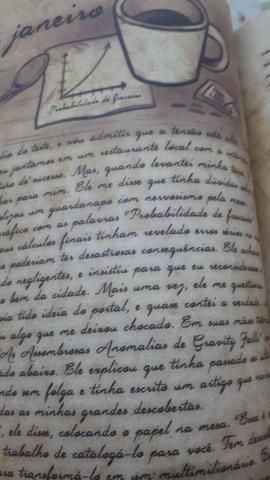 janeiro
Probabilidade de fracasso
dia do teste, e vou admitir que a tensão está
jantamos em um restaurante local com a
de sucesso. Mas, quando levantei minha
para mim. Ele me disse que tinha dúvidas
um guardanapo com nervosismo pela mesa
gráfico com as palavras "Probabilidade de fracasso
cálculos finais tinham revelado erros sérios
poderiam ter desastrosas consequências. Ele
do negligentes, e insistiu para que eu reconsiderasse
o bem da cidade. Mais uma vez, ele me questionou
tido ideia do portal, e quase contei a verdade
algo que me deixou chocado. Em suas mãos
"As Assombrosas Anomalias de Gravity Falls"
abaixo. Ele explicou que tinha passado
sem folga e tinha escrito um artigo que
das as minhas grandes descobertas.
ele disse, colocando o papel na mesa. "Essa é
trabalho de catalogá-lo para você. Tem
transformá-lo em um multimilionário.